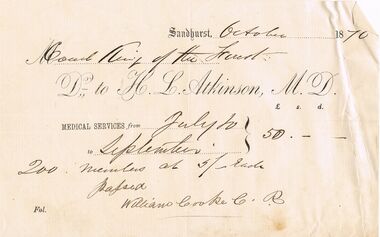 Sandhurst, October 1870
Court King of the Forest
Dr. to H. L. Atkinson, M. D.
£ s. d.
MEDICAL SERVICES from July to } 50 - -
to September
200 members at 5/ each
Passed
William Cooke C. R
Fol.